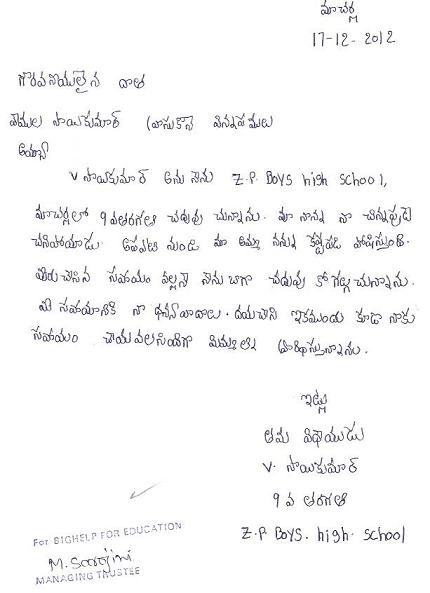 మాచర్ల
17-12-2012
గౌరవనీయులైన దాత
వేముల సాయికుమార్ వ్రాసుకొనె విన్నపములు
అయ్యా
V సాయికుమార్ అను నేను Z.P. Boys high school,
మాచర్లలో 9వతరగతి చదువు చున్నాను. మా నాన్న నా చిన్నప్పుడె
చనిపోయాడు అప్పటి నుండి మా అమ్మ నన్ను కష్టపడి పోషిస్తుంది.
మీరుచేసిన సహాయం వల్లనే నేనుబాగా చదువు కోగల్గుచున్నాను.
మీ సహాయానికి నా ధన్యవాదాలు. దయచేసి ఇకముందు కూడా నాకు
సహాయం చేయవలసిందిగా మిమ్మల్ని ప్రార్థిస్తున్నాను.
ఇట్లు
తమ విధేయుడు
V. సాయికుమార్
9 వ తరగతి
Z.P Boys. high. school
For BIGHELP FOR EDUCATION
M. Sarojini
MANAGING TRUSTEE